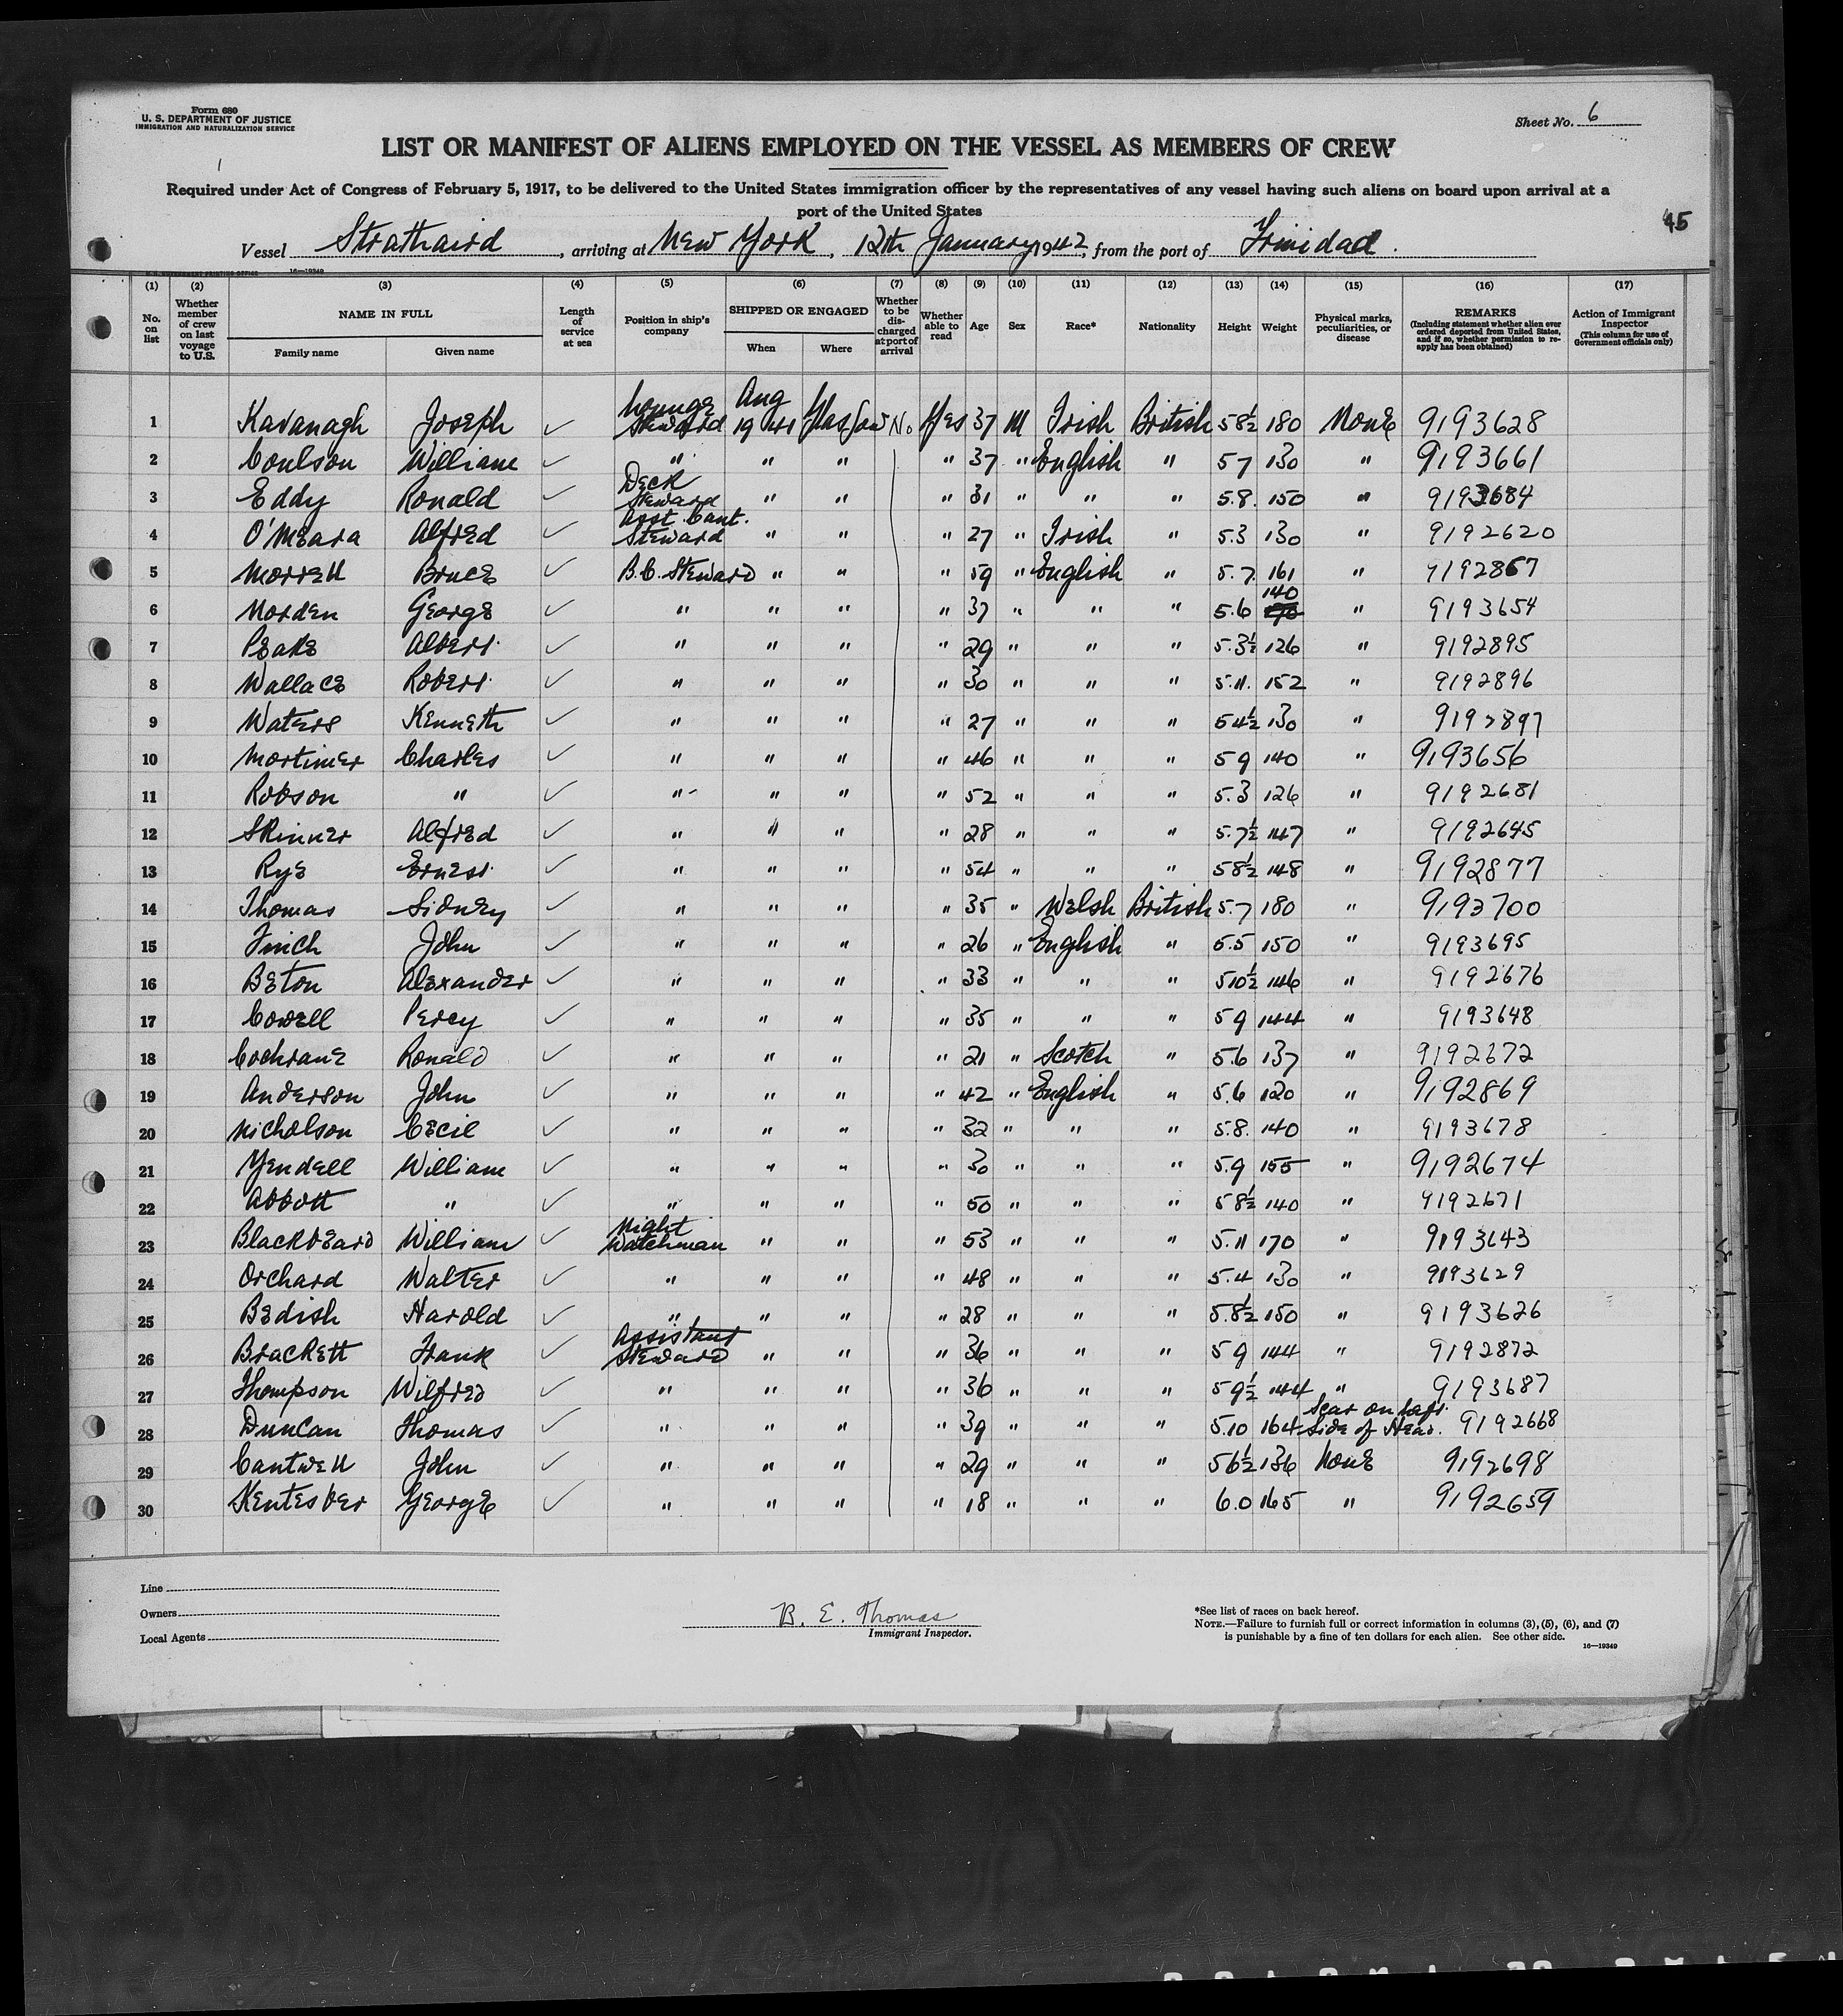 Form 680
U. S. DEPARTMENT OF JUSTICE
IMMIGRATION AND NATURALIZATION SERVICE
Sheet No. 6
LIST OR MANIFEST OF ALIENS EMPLOYED ON THE VESSEL AS MEMBERS OF CREW
Required under Act of Congress of February 5, 1917, to be delivered to the United States immigration officer by the representatives of any vessel having such aliens on board upon arrival at a
port of the United States
45
Vessel Strathaird, arriving at New York, 12th January 1942, from the port of Trinidad.
16—19349
(1) (2) (3) (4) (5) (6) (7) (8) (9) (10) (11) (12) (13) (14) (15) (16) (17)
No. on list Whether member of crew on last voyage to U.S. NAME IN FULL Family name Given name Length of service at sea Position in ship's company SHIPPED OR ENGAGED When Where Whether to be discharged at port of arrival Whether able to read Age Sex Race* Nationality Height Weight Physical marks, peculiarities, or disease REMARKS (Including statement whether alien ever ordered deported from United States, and if so, whether permission to reapply has been obtained) Action of Immigrant Inspector (This column for use of Government officials only)
1 Kavanagh Joseph ✓ Lounge Steward Aug 1941 Glasgow No. Yes 37 M Irish British 5 8½ 180 None 9193628
2 Coulson William ✓ " " " " 37 " English " 5 7 130 " 9193661
3 Eddy Ronald ✓ Deck Steward " " " 31 " " " 5.8. 150 " 9193684
4 O'Meara Alfred ✓ Asst. Cant. Steward " " " 27 " Irish " 5.3 130 " 9192620
5 Morrell Bruce ✓ B.C. Steward " " " 59 " English " 5.7. 161 " 9192867
6 Norden George ✓ " " " " 37 " " " 5.6 140 " 9193654
7 Peake Albert ✓ " " " " 29 " " " 5.3½ 126 " 9192895
8 Wallace Robert ✓ " " " " 30 " " " 5.11. 152 " 9192896
9 Waters Kenneth ✓ " " " " 27 " " " 5 4½ 130 " 9192897
10 Mortimer Charles ✓ " " " " 46 " " " 5 9 140 " 9193656
11 Robson " ✓ " " " " 52 " " " 5.3 126 " 9192681
12 Skinner Alfred ✓ " " " " 28 " " " 5.7½ 147 " 9192645
13 Rye Ernest ✓ " " " " 54 " " " 5 8½ 148 " 9192877
14 Thomas Sidney ✓ " " " " 35 " Welsh British 5.7 180 " 9193700
15 Finch John ✓ " " " " 26 " English " 5.5 150 " 9193695
16 Beton Alexander ✓ " " " " 33 " " " 5 10½ 146 " 9192676
17 Cowell Percy ✓ " " " " 35 " " " 5 9 144 " 9193648
18 Cochrane Ronald ✓ " " " " 21 " Scotch " 5.6 137 " 9192672
19 Anderson John ✓ " " " " 42 " English " 5.6 120 " 9192869
20 Nicholson Cecil ✓ " " " " 32 " " " 5.8. 140 " 9193678
21 Yendell William ✓ " " " " 30 " " " 5.9 155 " 9192674
22 Abbott " ✓ " " " " 50 " " " 5 8½ 140 " 9192671
23 Blackbeard William ✓ Night Watchman " " " 53 " " " 5.11 170 " 9193643
24 Orchard Walter ✓ " " " " 48 " " " 5.4 130 " 9193629
25 Bedish Harold ✓ " " " " 28 " " " 5.8½ 150 " 9193626
26 Brackett Frank ✓ Assistant Steward " " " 36 " " " 5 9 144 " 9192872
27 Thompson Wilfred ✓ " " " " 36 " " " 5 9½ 144 " 9193687
28 Duncan Thomas ✓ " " " " 39 " " " 5.10 164 Scar on Left Side of Head. 9192668
29 Cantwell John ✓ " " " " 29 " " " 5 6½ 136 None 9192698
30 Kentesber George ✓ " " " " 18 " " " 6.0 165 " 9192659
Line
Owners
Local Agents
B. E. Thomas
Immigrant Inspector.
*See list of races on back hereof.
NOTE.—Failure to furnish full or correct information in columns (3), (5), (6), and (7)
is punishable by a fine of ten dollars for each alien. See other side.
16—19349